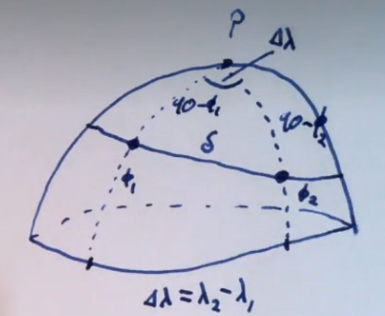 P
Δλ
90-ϕ₁
90-ϕ₂
δ
ϕ₁
ϕ₂
Δλ = λ₂-λ₁